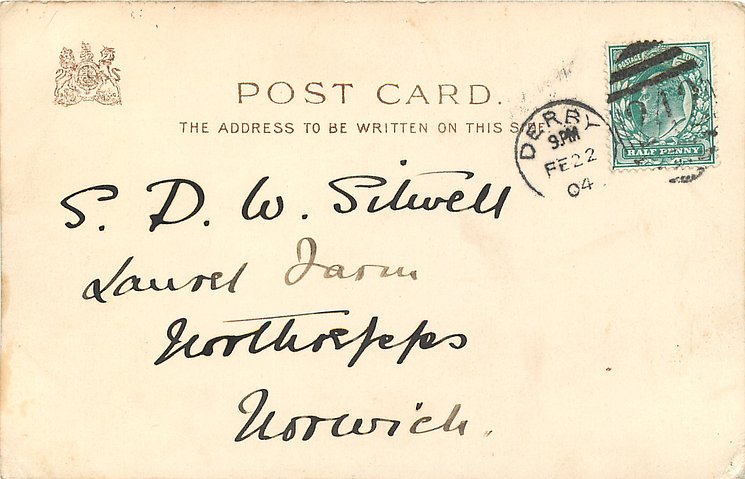 POST CARD.
THE ADDRESS TO BE WRITTEN ON THIS SIDE
DERBY
9 PM
FE 22
04
HALF PENNY
S. D. W. Sitwell
Laurel Farm
Northrepps
Norwich.